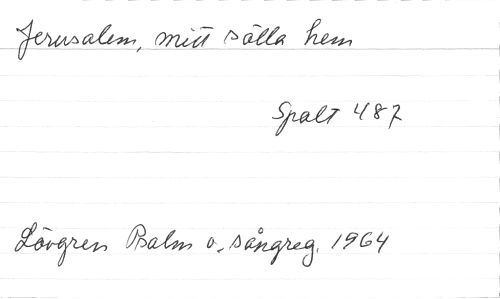 Jerusalem, mitt sälla hem
Spalt 487
Lövgren Psalm o. sångreg. 1964